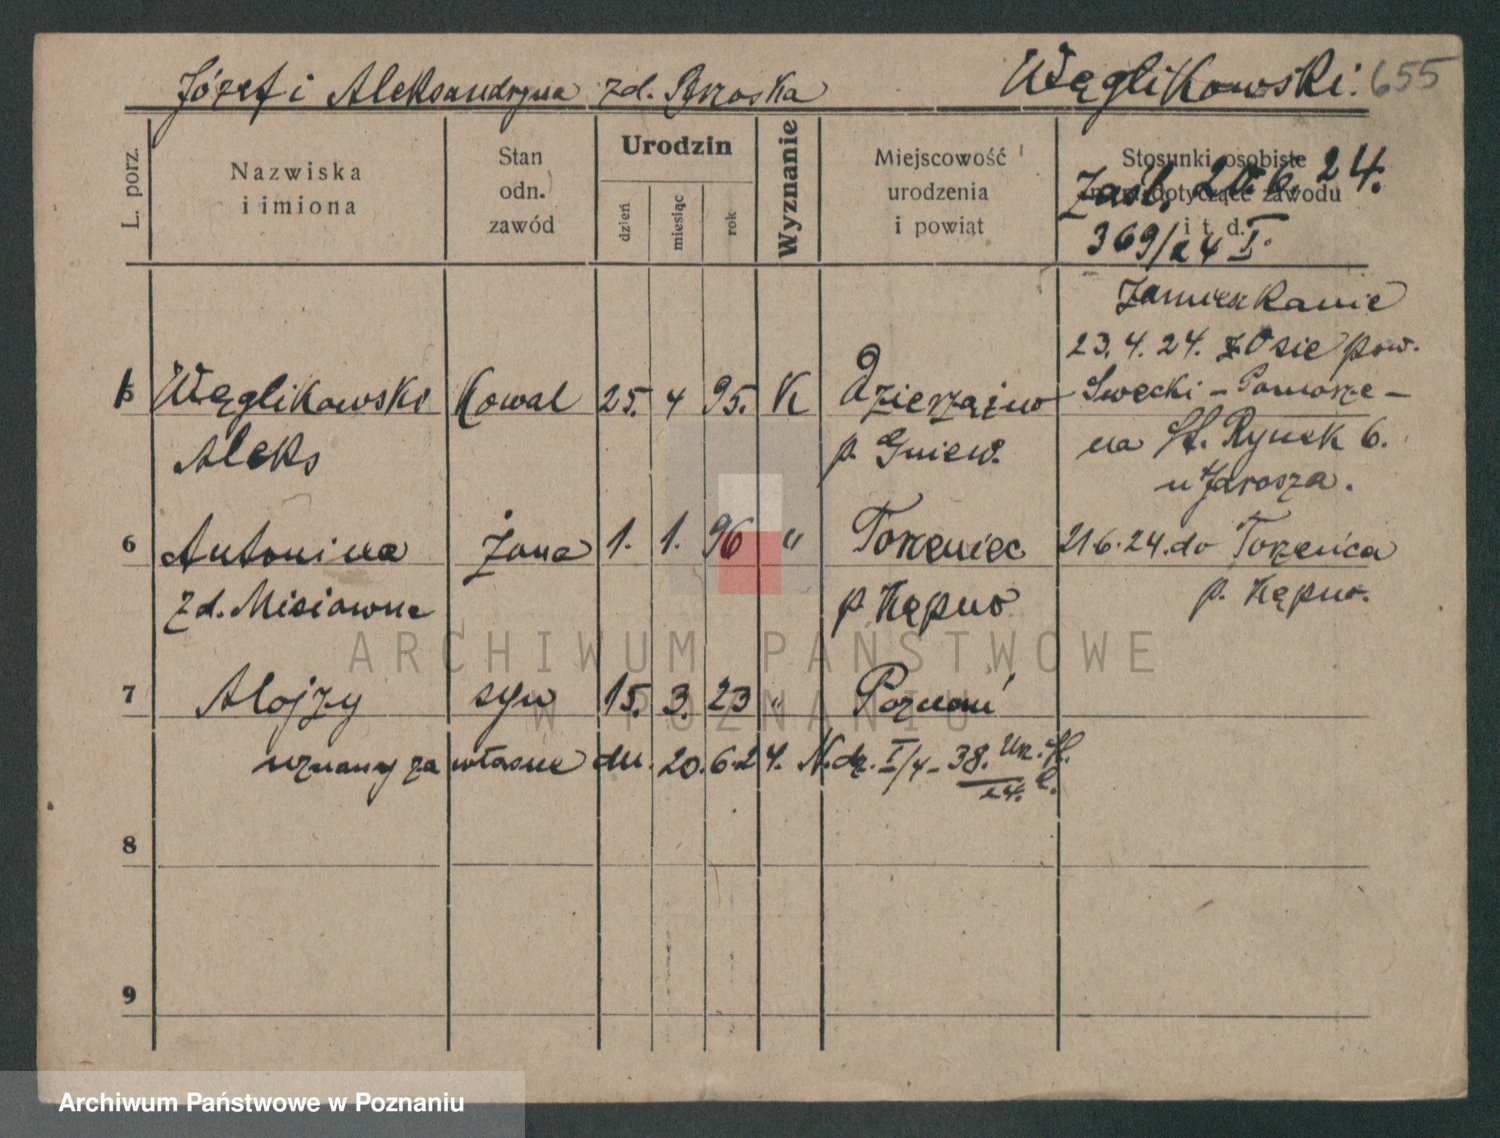 Józef i Aleksandryna zd. Brzoska Węglikowski. 655
L. porz.
Nazwiska
i imiona
Stan
odn.
zawód
Urodzin
dzień
miesiąc
rok
Wyznanie
Miejscowość
urodzenia
i powiat
Stosunki osobiste
zmiany dotyczące zawodu
i t. d.
Zaśl. 20.6.24.
369/24 I.
Zamieszkanie
23.4.24. z Osie pow.
1 Węglikowski Kowal 25. 4 95. K Dzierzążno Świecki – Pomorze –
Aleks p. Gniew. na St. Rynek 6.
u Jarosza.
6 Antonina żona 1. 1. 96 " Torzeniec 21 6.24. do Torzeńca
zd. Misiowna p. Kępno p. Kępno.
7 Alojzy syn 15. 3. 23 " Poznań
uznany za własne dn. 20.6.24. N. dz. I/4 - 38. Urz. St.
24.
8
9
ARCHIWUM PAŃSTWOWE
W POZNANIU
Archiwum Państwowe w Poznaniu